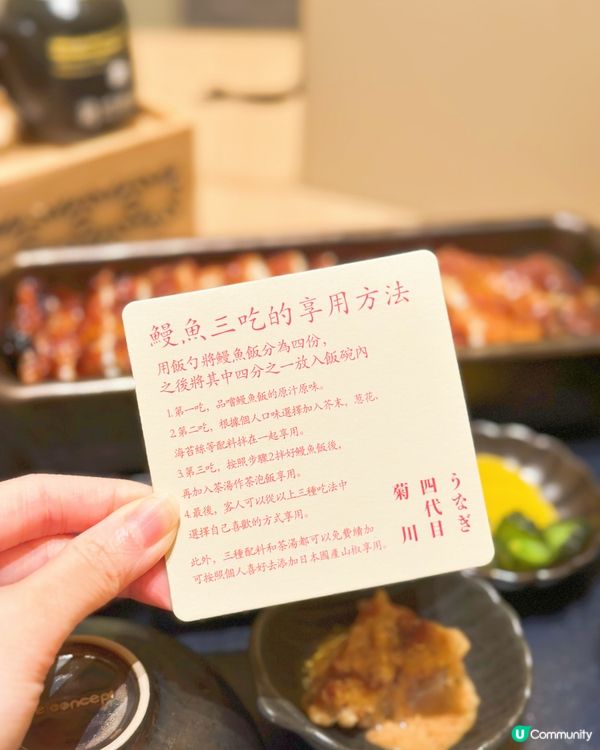 鰻魚三吃的享用方法
用飯勺將鰻魚飯分為四份，
之後將其中四分之一放入飯碗內
1.第一吃，品嚐鰻魚飯的原汁原味。
2.第二吃，根據個人口味選擇加入芥末，蔥花、
海苔絲等配料拌在一起享用。
3.第三吃，按照步驟2拌好鰻魚飯後，
再加入茶湯作茶泡飯享用。
4.最後，客人可以從以上三種吃法中
選擇自己喜歡的方式享用。
此外，三種配料和茶湯都可以免費續加
可按照個人喜好去添加日本國產山椒享用。
うなぎ
四代目
菊川
e concept
U Community